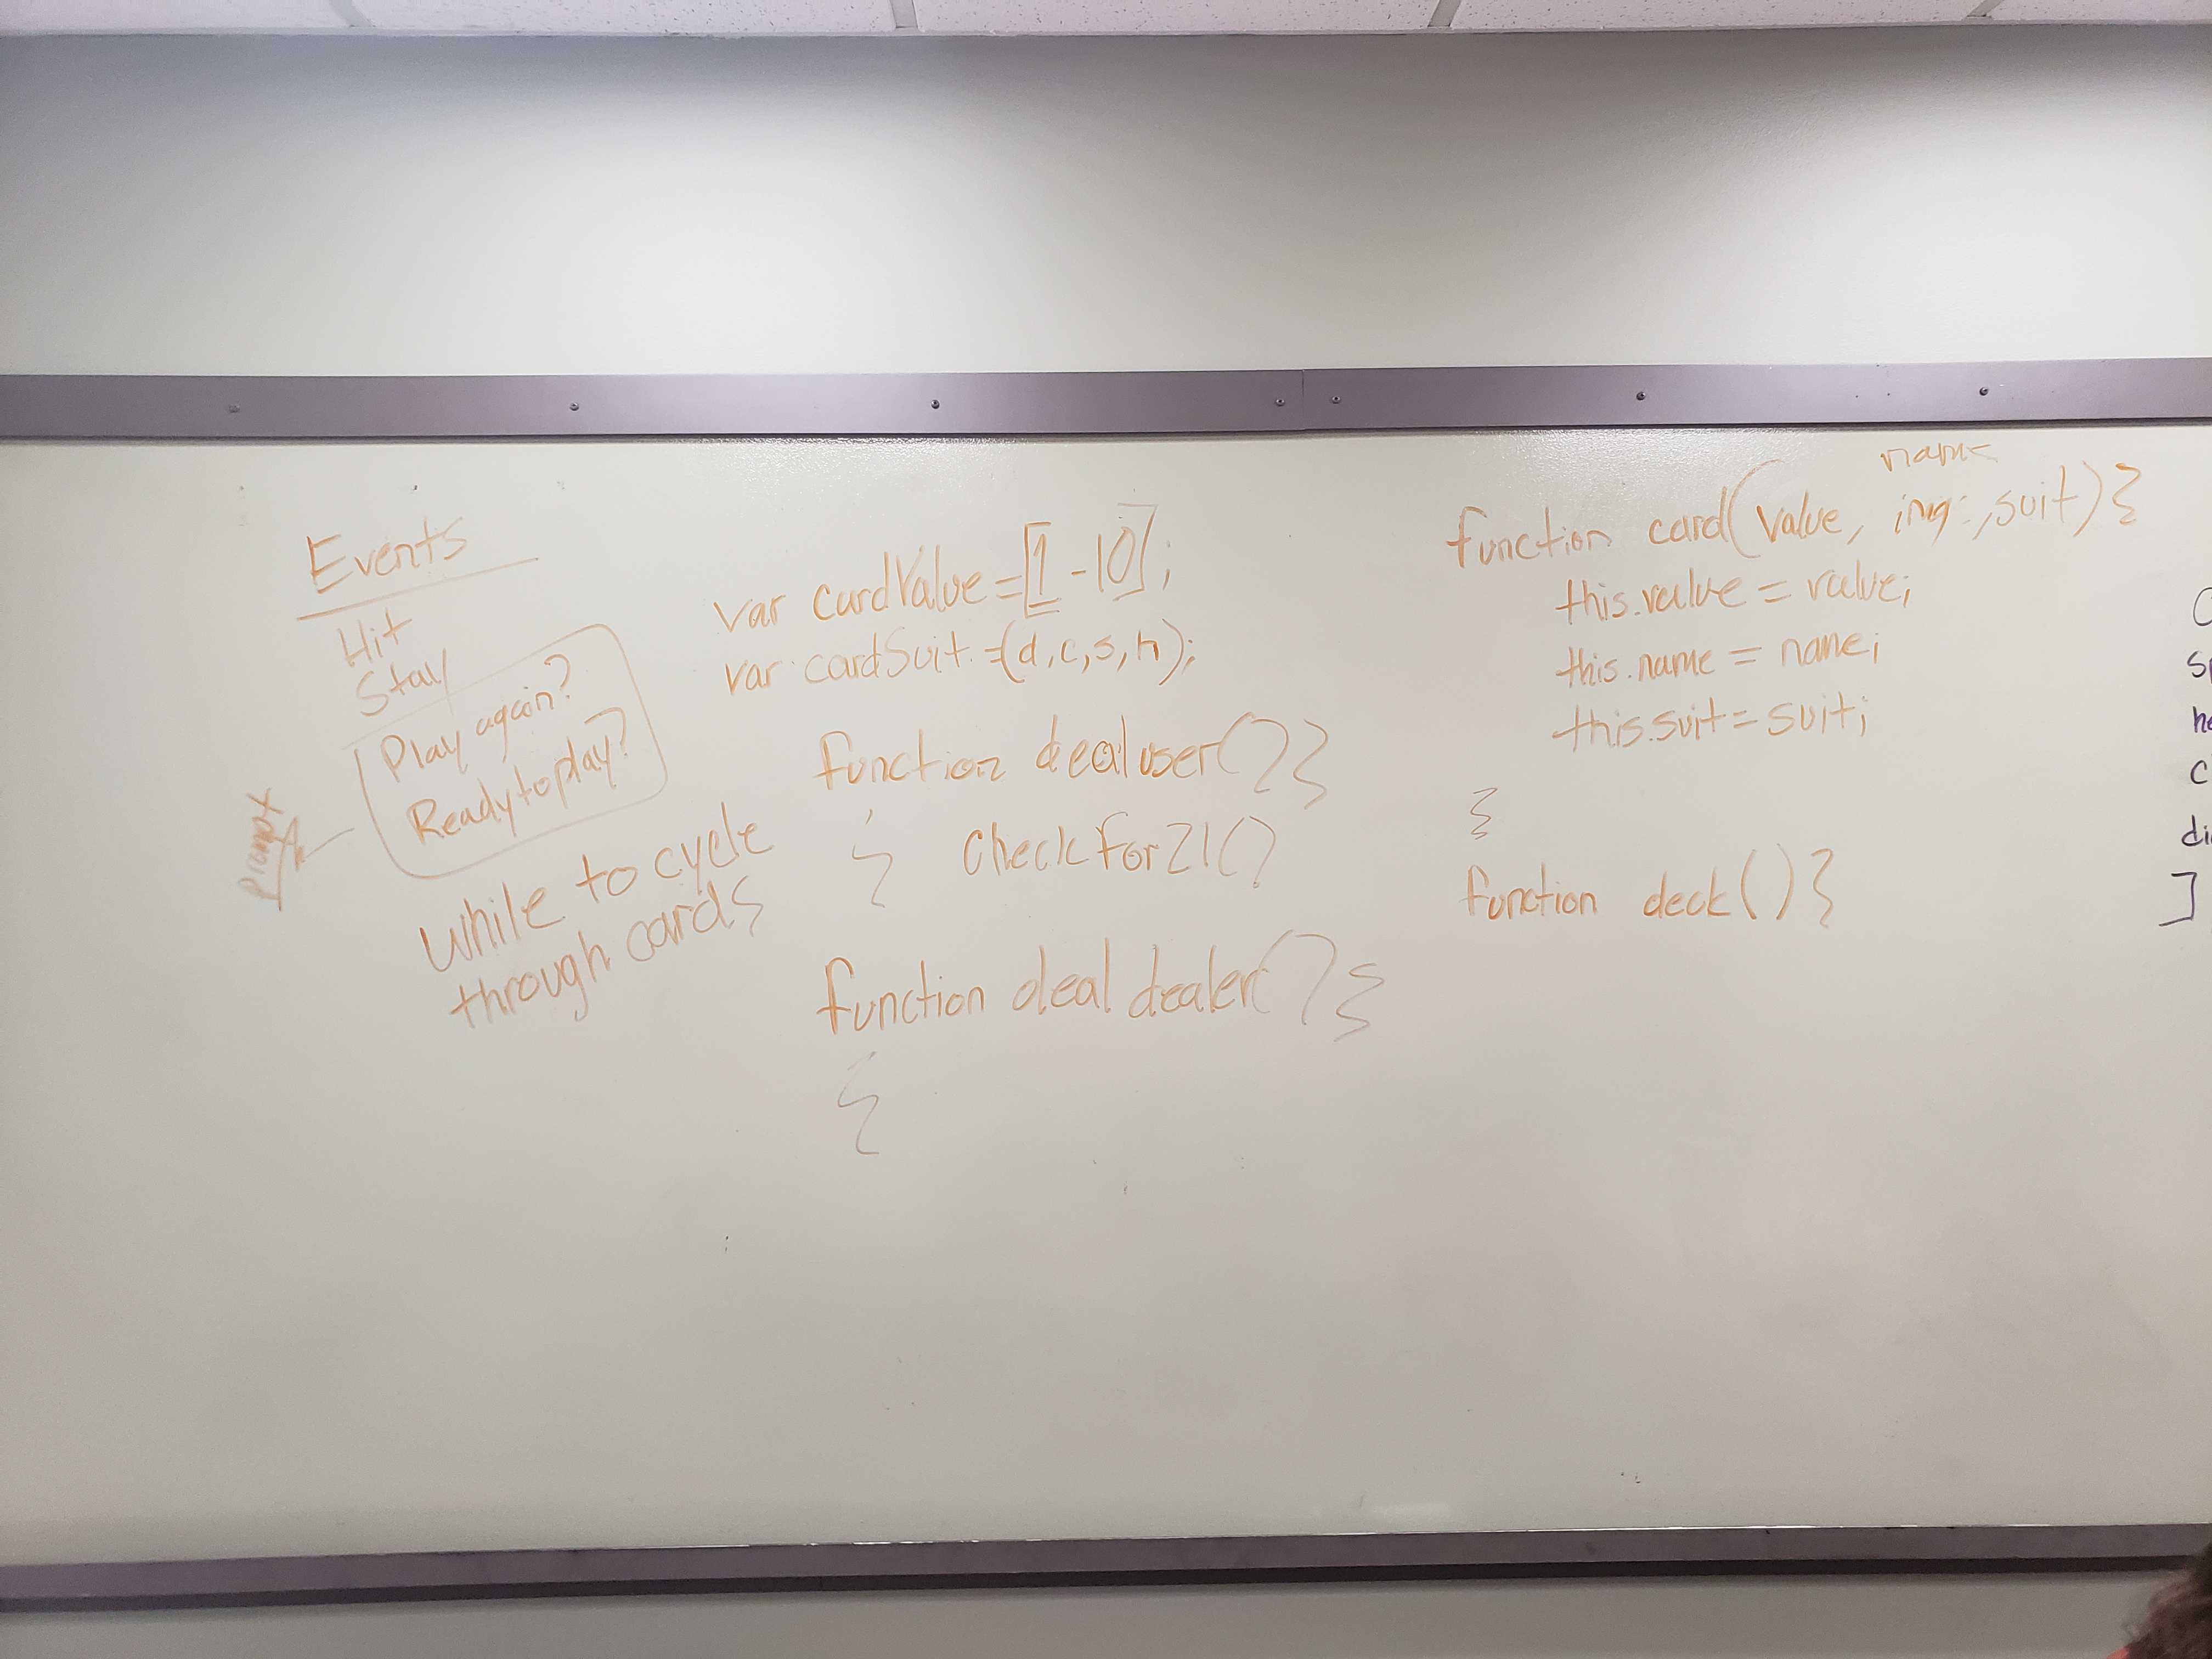 Events
Hit
Stay
Play again?
Ready to play?
prompt
while to cycle
through cards
var cardValue=[1-10];
var cardSuit=(d,c,s,h);
function dealuser(){
} CheckFor21()
function deal dealer(){
}
name
function card(value, img, suit){
this.value = value;
this.name = name;
this.suit = suit;
}
function deck(){
]